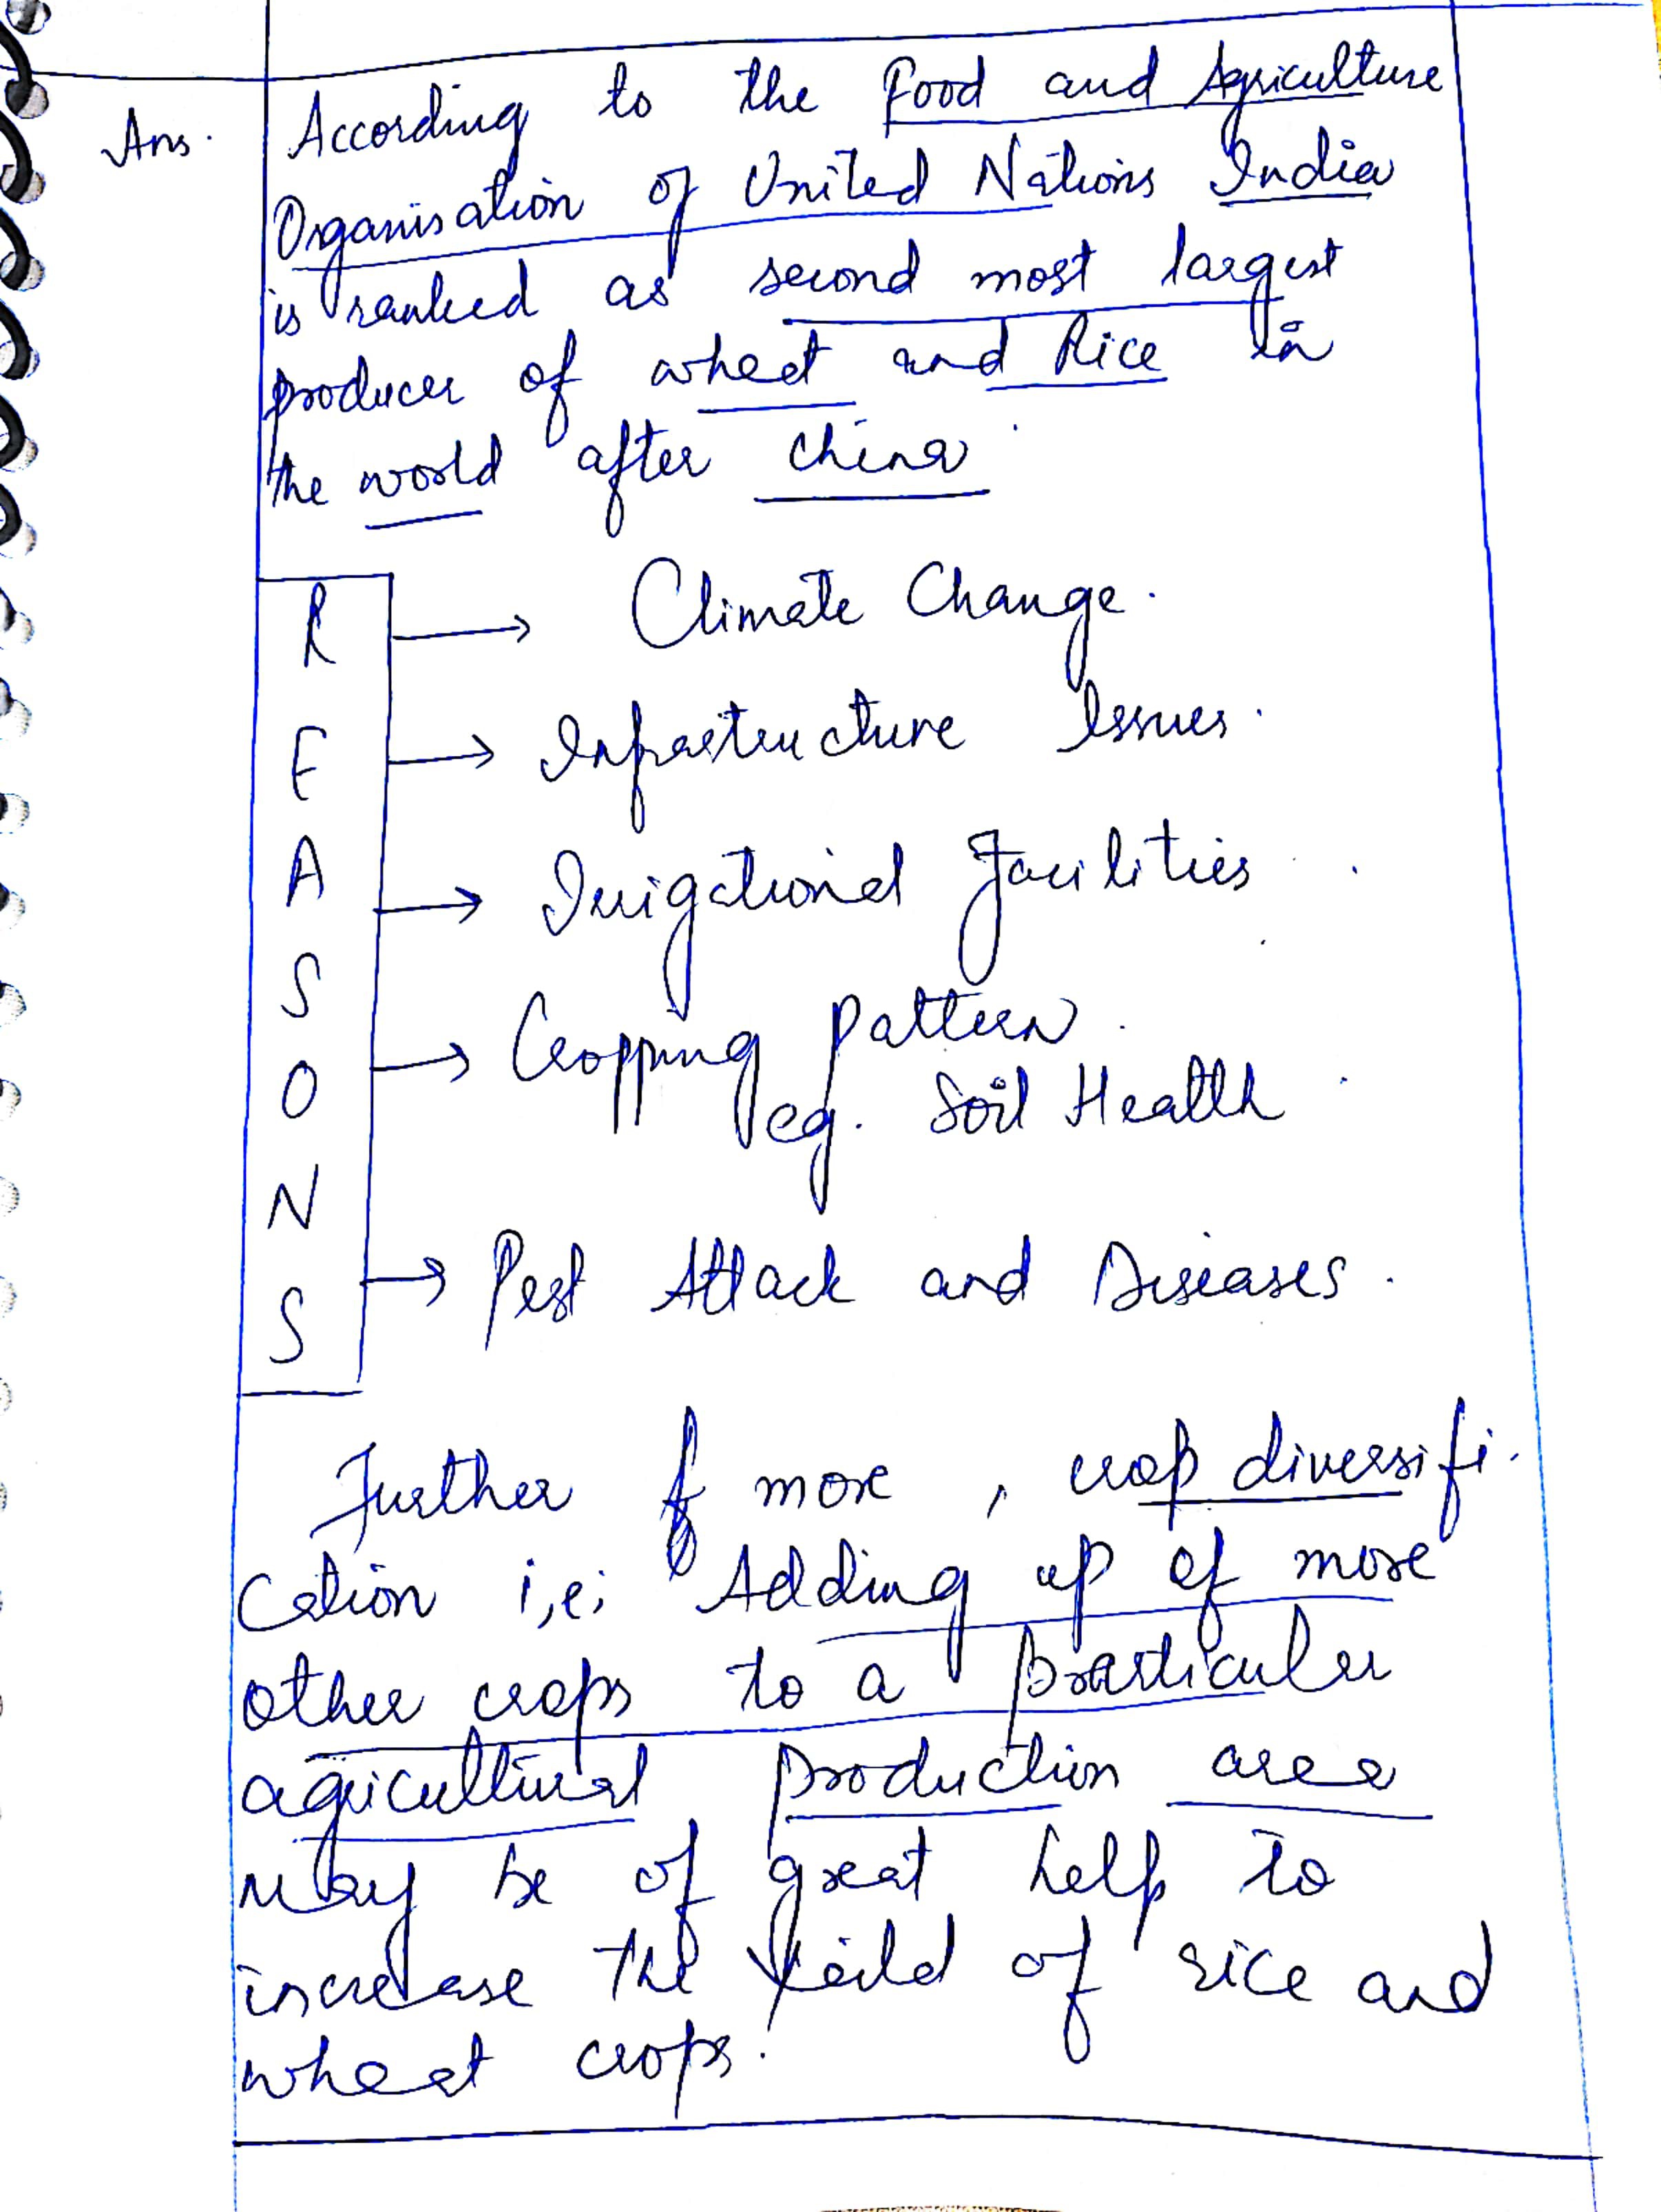 Ans. According to the Food and Agriculture
Organisation of United Nations India
is ranked as second most largest
producer of wheat and Rice in
the world after china.
R → Climate Change.
E → Infrastructure Issues.
A → Irrigational facilities
S
O → Cropping pattern.
eg. Soil Health
N
S → Pest Attack and Diseases.
Further more, crop diversifi-
cation i,e; Adding up of more
other crops to a particular
agricultural production area
may be of great help to
increase the Yeild of rice and
wheat crops.